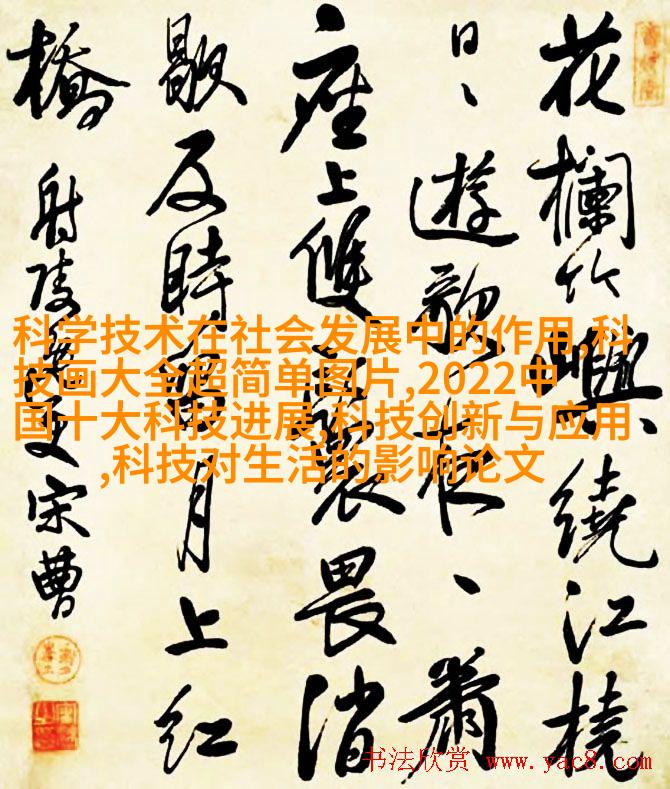 花欄竹嶼繞江橈
日、遊歌夜、簫
座上雙畏消
歇及時月上紅
橋 射陵史宋曹
科学技术在社会发展中的作用,科
技画大全超简单图片,2022中
国十大科技进展,科技创新与应用
,科技对生活的影响论文
书法欣赏 www.yac8.com